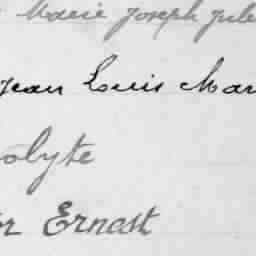 Marie Joseph Jule
Jean Louis Mar
olyte
or Ernest